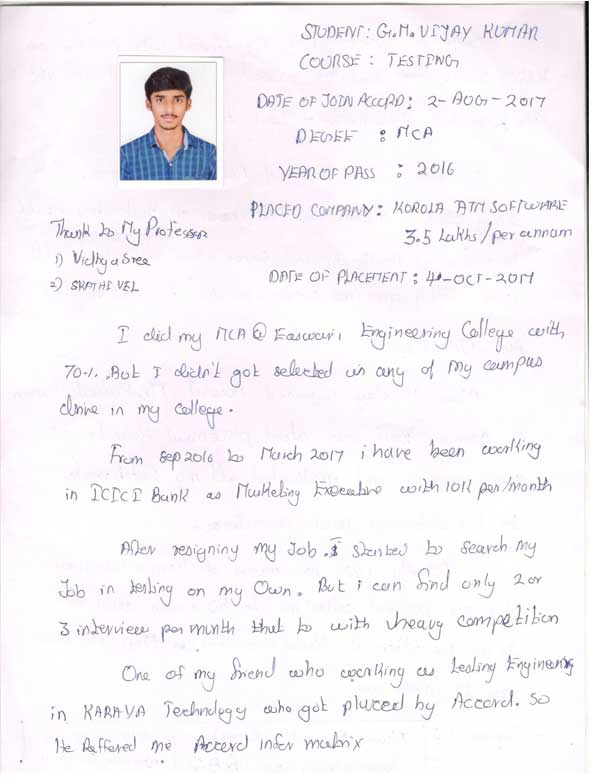 STUDENT: G.M. VIJAY KUMAR
COURSE : TESTING
DATE OF JOIN ACCORD: 2-AUG-2017
DEGREE : MCA
YEAR OF PASS : 2016
PLACED COMPANY: KOROLA ATM SOFTWARE
3.5 Lakhs/per annum
DATE OF PLACEMENT: 4-OCT-2017
Thank to My Professor
1) Vidhya Sree
2) SKATHI VEL
I did my MCA @ Easwari Engineering College with
70%. But I didn't got selected in any of my campus
drive in my college.
From Sep 2016 to March 2017 i have been working
in ICICI Bank as Marketing Executive with 10K per/month
After resigning my Job. I started to search my
Job in testing on my own. But i can find only 2 or
3 interview per month that to with heavy competition
One of my friend who working as Testing Engineering
in KARAYA Technology who got placed by Accord. So
He Reffered me Accord infor matrix